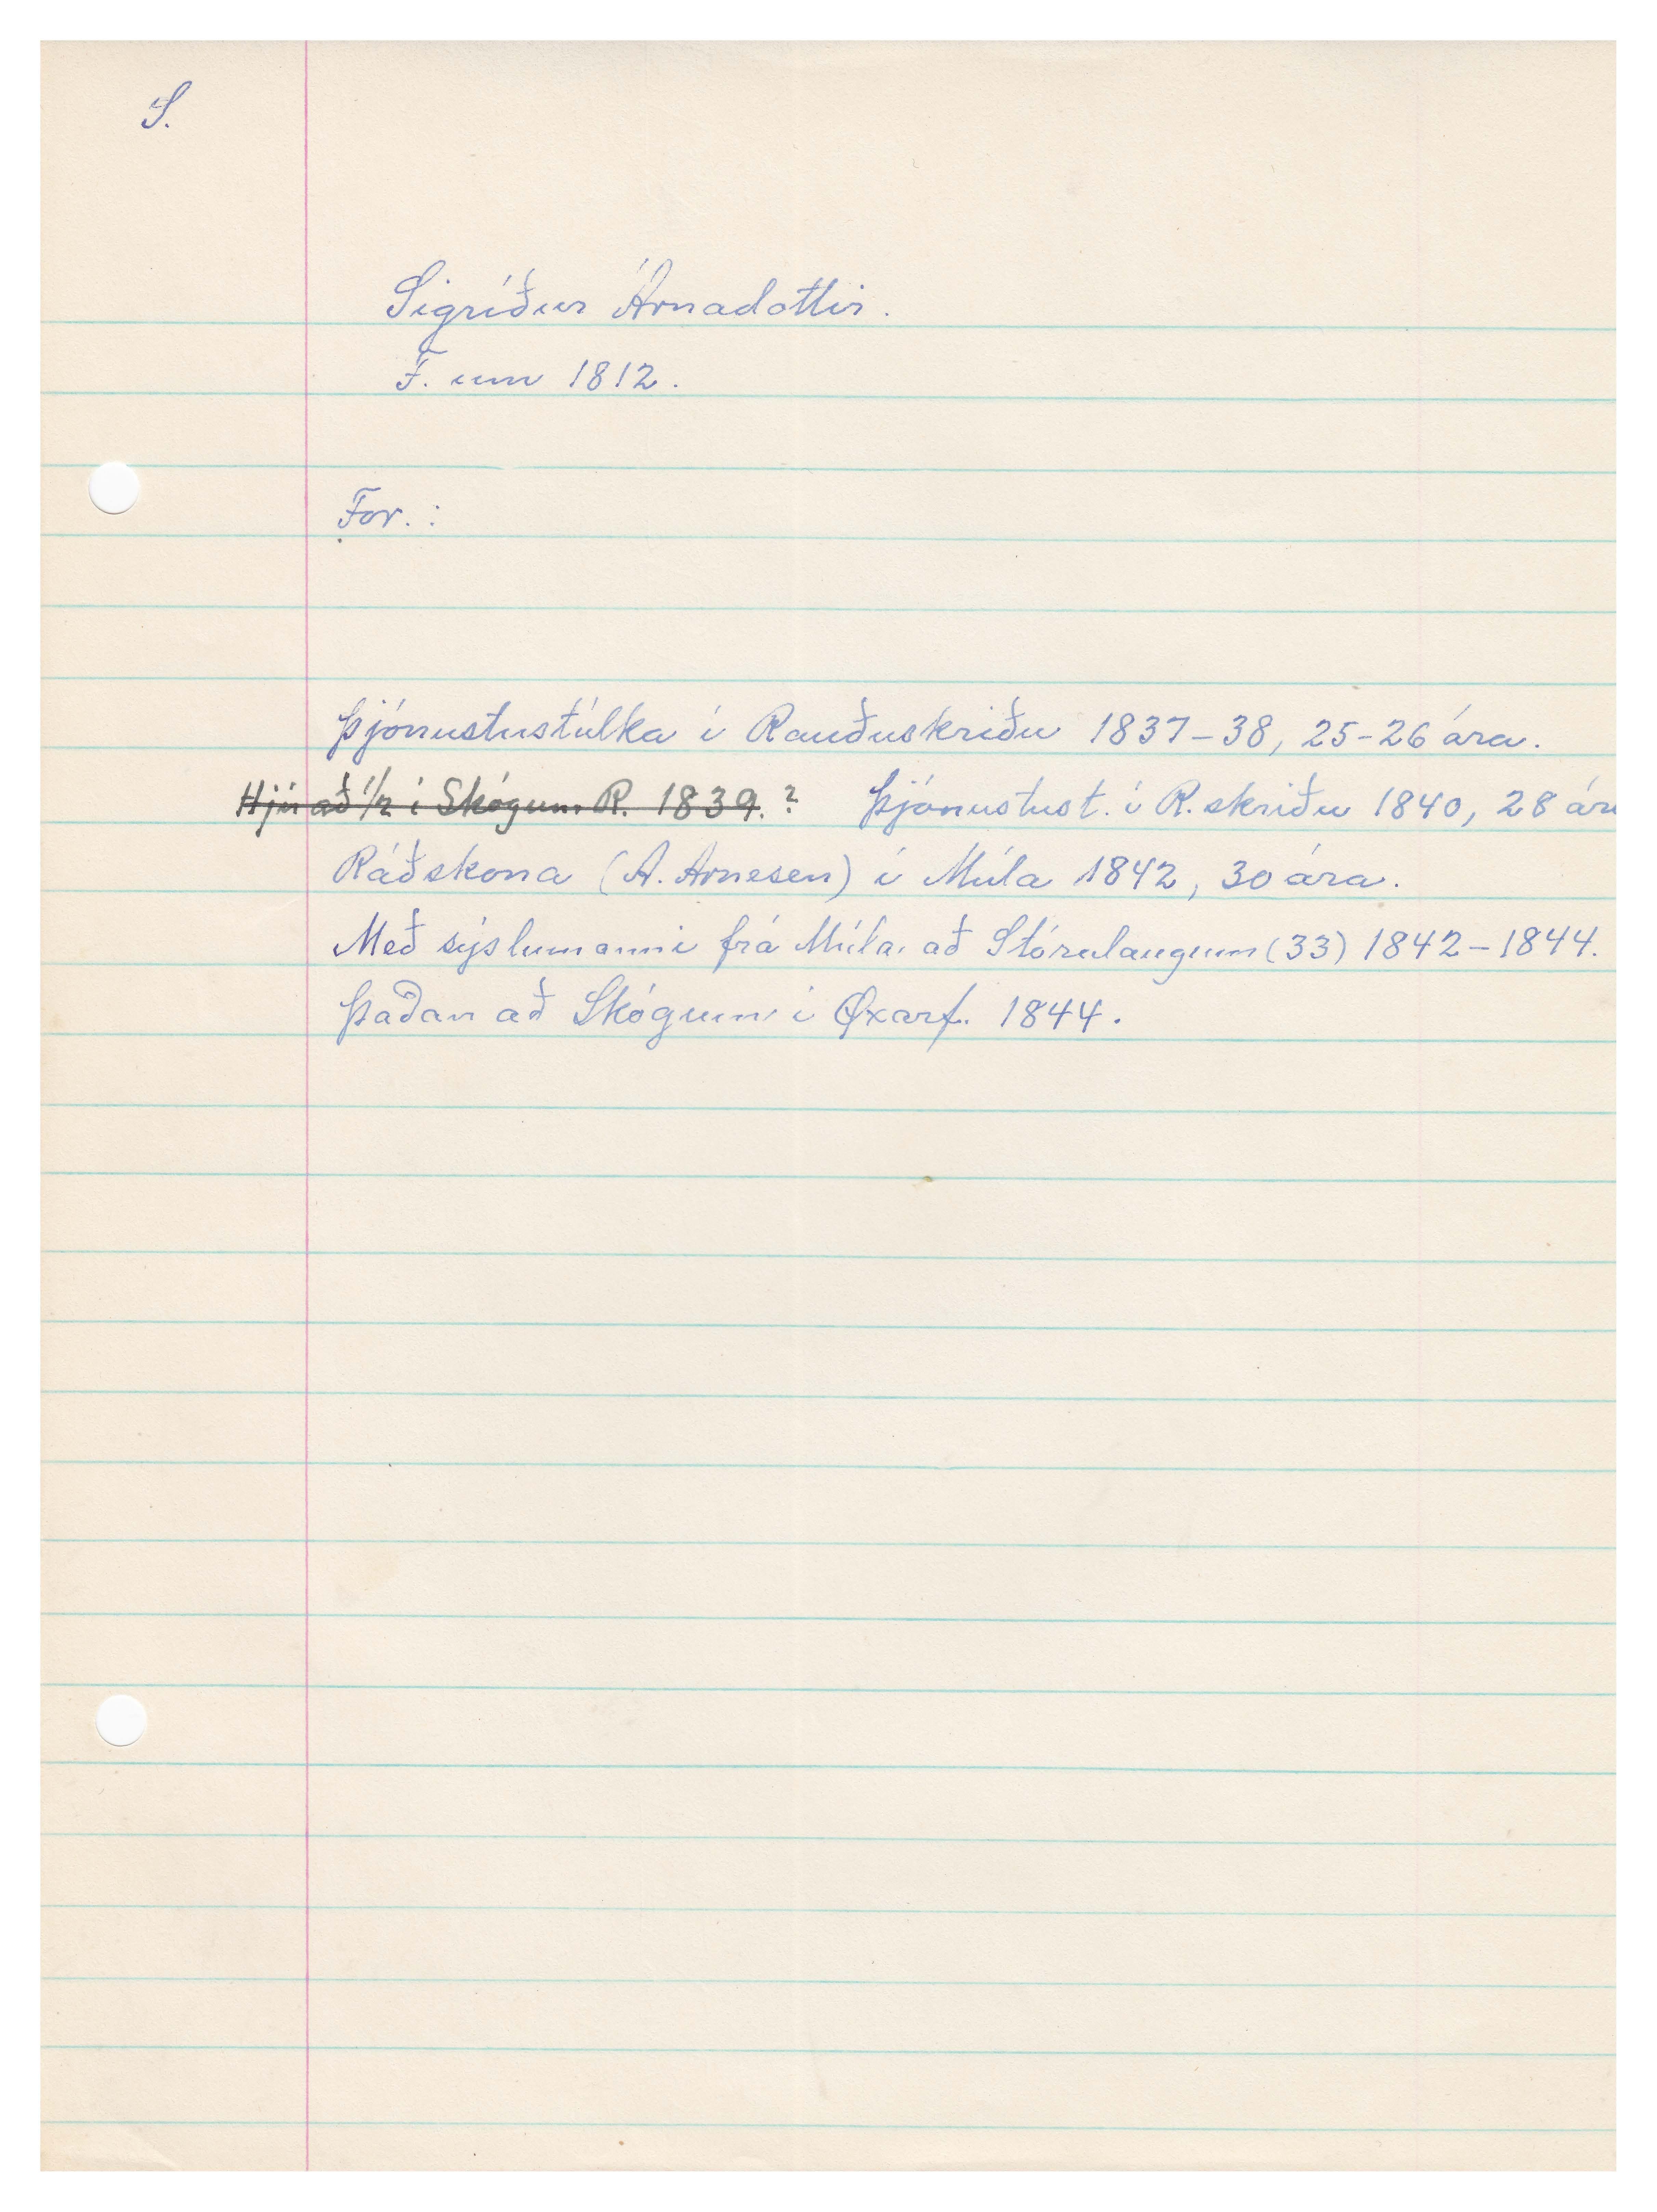 S.
Sigríður Árnadóttir.
F. um 1812.
For. :
Þjónustustúlka í Rauðuskriðu 1837-38, 25-26 ára.
Hjú að 1/2 í Skógum R. 1839. ? Þjónustust. í R.skriðu 1840, 28 ára
Ráðskona (A. Arnesen) í Múla 1842, 30 ára.
Með sýslumanni frá Múla að Stórulaugum (33) 1842-1844.
Þaðan að Skógum í Øxarf. 1844.